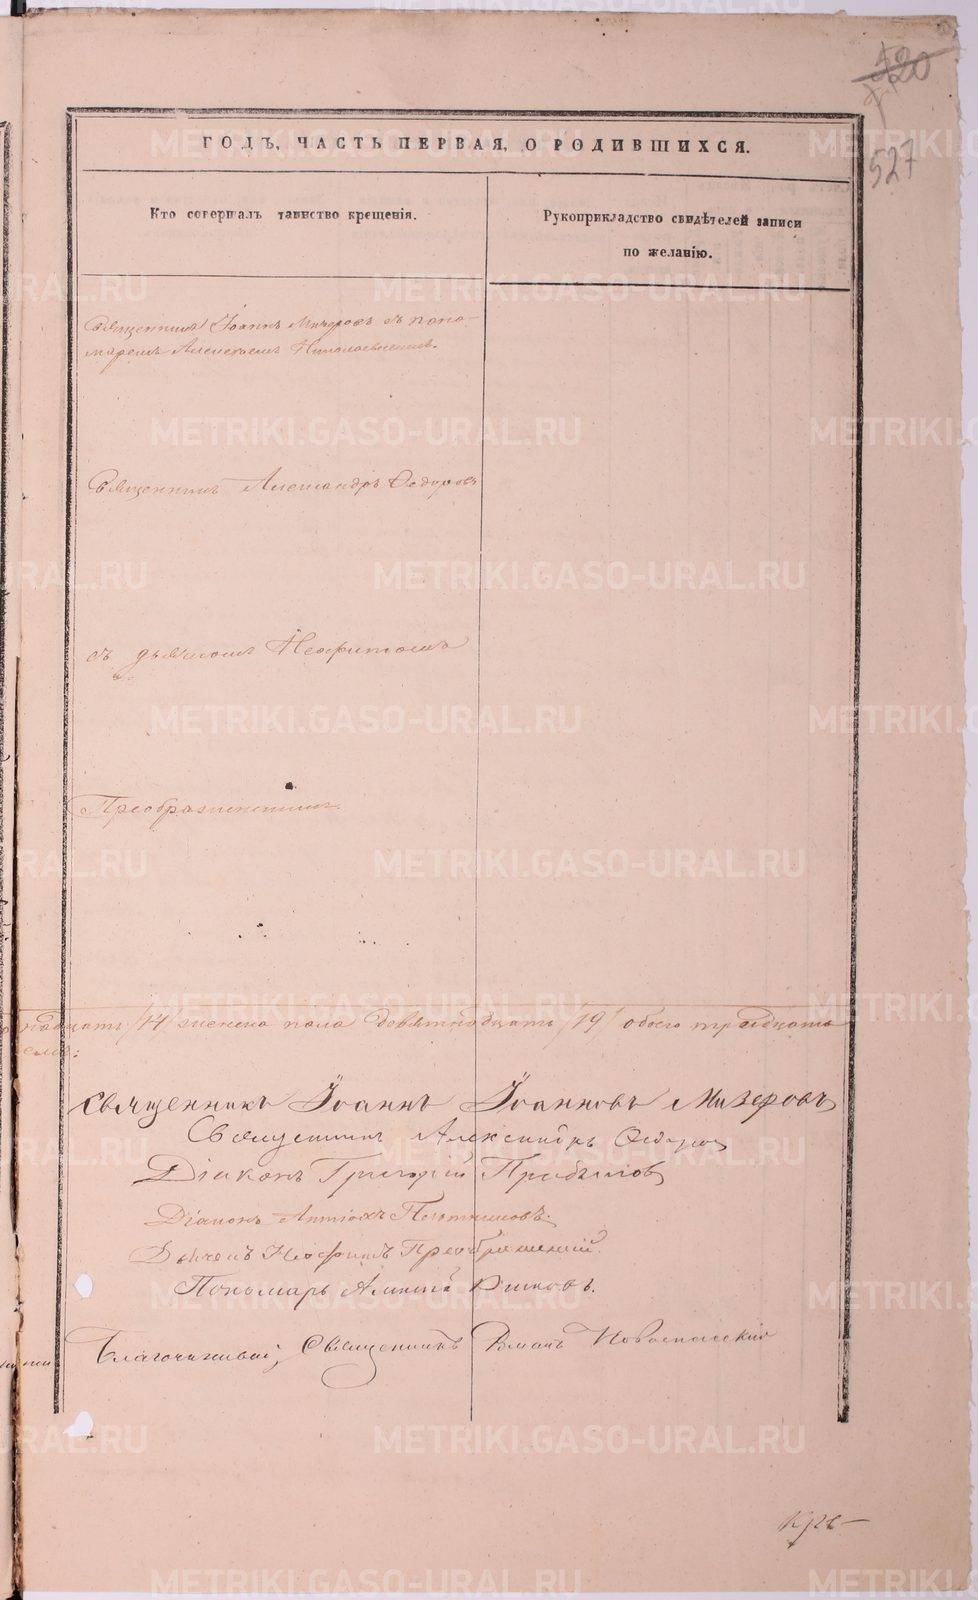 520
527
ГОДЪ, ЧАСТЬ ПЕРВАЯ, О РОДИВШИХСЯ.
Кто совершалъ таинство крещенія.
Рукоприкладство свидѣтелей записи
по желанію.
Священникъ Іоаннъ Мизеровъ съ поно-
маремъ Алексѣемъ
Священникъ Александръ Ѳедоровъ
съ дьячкомъ Неофитомъ
Преображенскимъ.
/14/ женска пола девятнадцать /19/ обоего тридцать
Священникъ Іоаннъ Іоанновъ Мизеровъ
Священникъ Александръ Ѳедоровъ
Діаконъ Григорій Прибылов
Діаконъ Антіохъ Плотниковъ.
Дьячекъ Неофитъ Преображенскій.
Пономарь
Благочинный, Священникъ Новоспасскій
METRIKI.GASO-URAL.RU